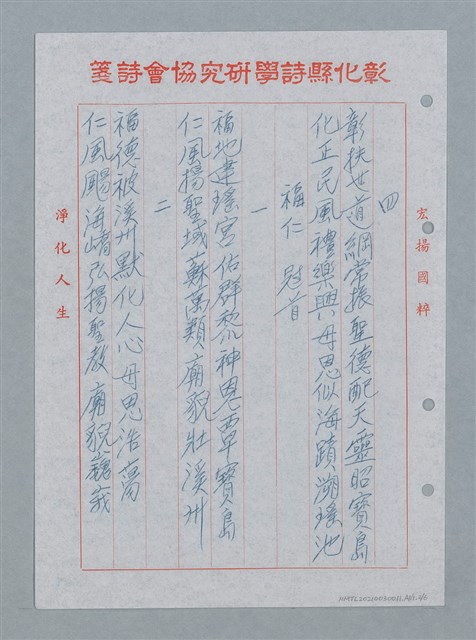 彰化縣詩學研究協會詩箋
宏揚國粹
四
彰扶世道綱常振聖德配天靈昭寶島
化正民風禮樂興母恩似海蹟溯瑤池
福仁 冠首
一
福地建瑤宮佑群黎神恩覃寶島
仁風揚聖域蘇萬類廟貌壯溪州
二
福德被溪州默化人心母恩浩蕩
仁風颺海嵴弘揚聖教廟貌巍峩
淨化人生